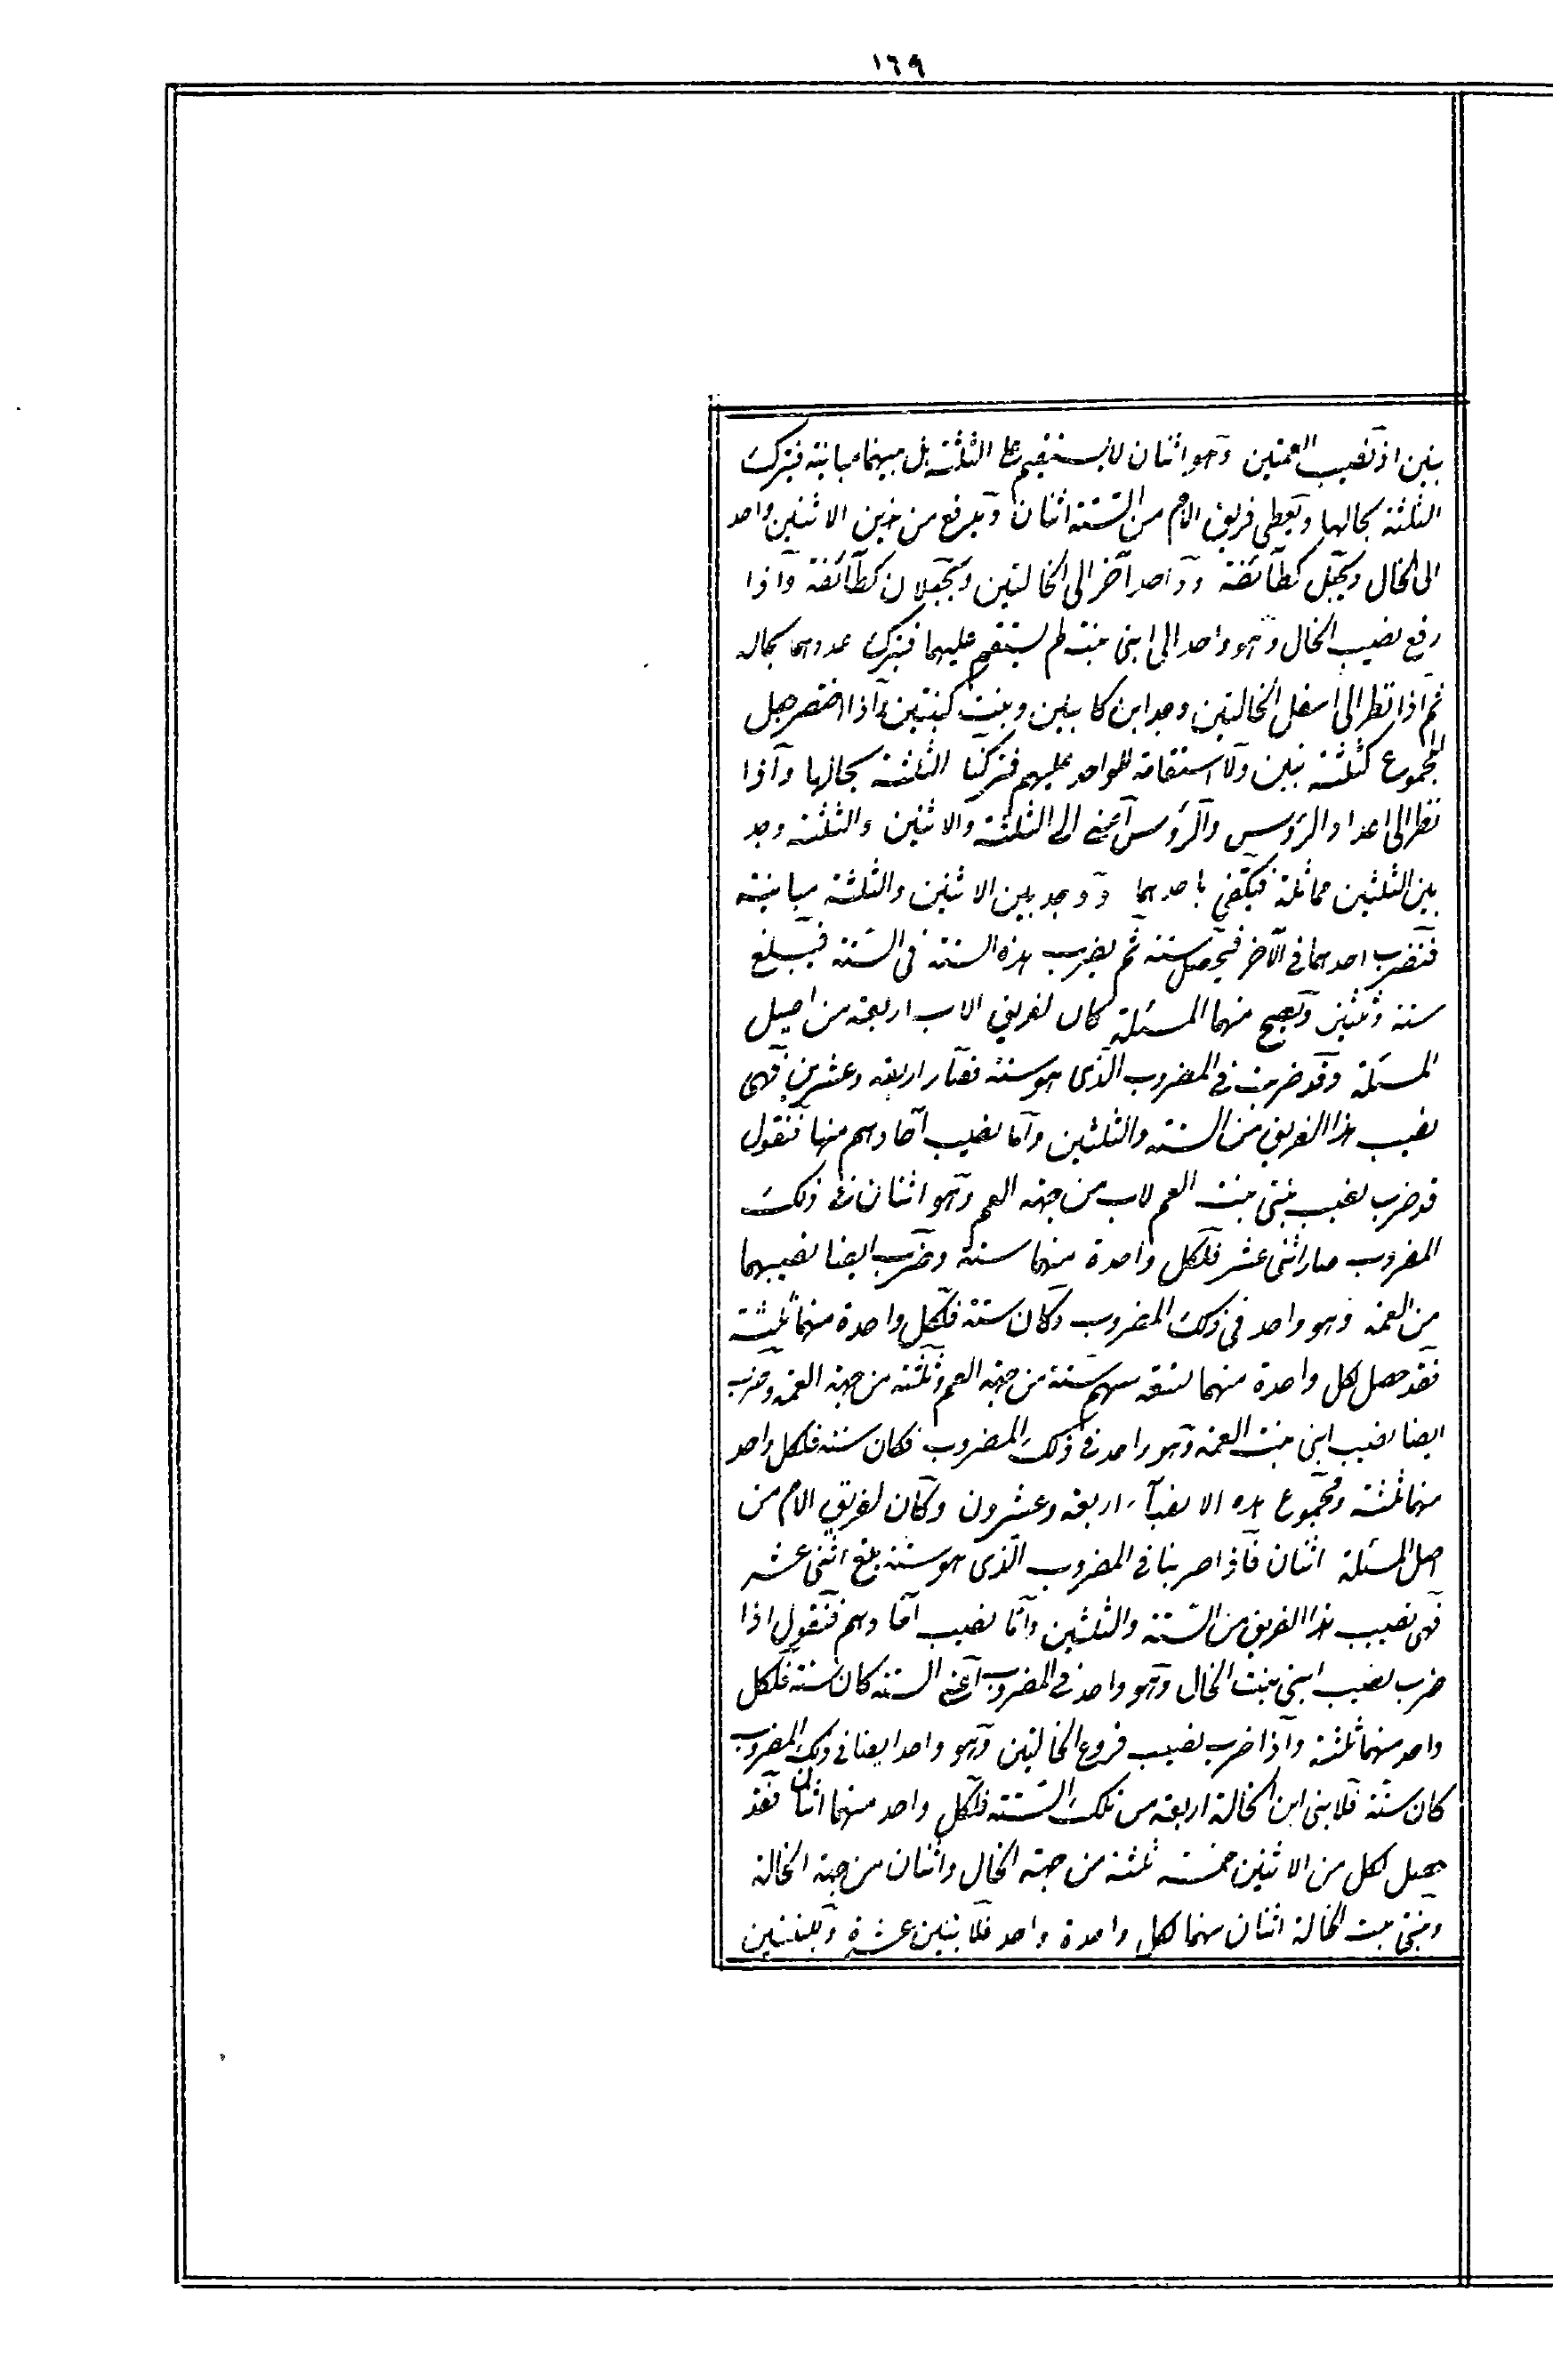 ١٦٩
بنين اذ نصيب العمتين وهو اثنان لا يستقيم على الثلثة بل بينهما مباينة فيترك
الثلثة بحالها ويعطى فريق الام من الستة اثنان ويدفع من هذين الاثنين واحد
الى الخال ويجعل كطائفة وواحد آخر الى الخالتين وتجعلان كطائفة واذا
رفع نصيب الخال وهو واحد الى ابنى بنته لم يستقم عليهما فيترك عددهما بحاله
ثم اذا نظر الى اسفل الخالتين وجد ابن كابنين وبنت كبنتين واذا اختصر جعل
المجموع كثلثة بنين ولا استقامة للواحد عليهم فتركنا الثلثة بحالها واذا
نظر الى اعداد الرؤس والرؤس اعنى الى الثلثة والاثنين والثلثة وجد
بين الثلثين مماثلة فيكتفى باحدهما ووجد بين الاثنين والثلثة مباينة
فتضرب احدهما فى الآخر فيحصل ستة ثم يضرب هذه الستة فى الستة فيبلغ
ستة وثلثين وتصح منها المسئلة كان لفريق الاب اربعة من اصل
المسئلة وقد ضربت فى المضروب الذى هو ستة فصار اربعة وعشرين فهى
نصيب هذا الفريق من الستة والثلثين واما نصيب آحادهم منها فنقول
قد ضرب نصيب بنتى بنت العم لاب من جهة العم وهو اثنان فى ذلك
المضروب صار اثنى عشر فلكل واحدة منهما ستة وضرب ايضا نصيبهما
من العمة وهو واحد فى ذلك المضروب وكان ستة فلكل واحدة منهما ثلثة
فقد حصل لكل واحدة منهما تسعة سهم ستة من جهة العم وثلثة من جهة العمة وضرب
ايضا نصيب ابنى بنت العمة وهو واحد فى ذلك المضروب فكان ستة فلكل واحد
منهما ثلثة ومجموع هذه الانصباء اربعة وعشرون وكان لفريق الام من
اصل المسئلة اثنان فاذا ضربنا فى المضروب الذى هو ستة بلغ اثنى عشر
فهى نصيب هذا الفريق من الستة والثلثين واما نصيب آحادهم فنقول اذا
ضرب نصيب ابنى بنت الخال وهو واحد فى المضروب اعنى الستة كان ستة فلكل
واحد منهما ثلثة واذا ضرب نصيب فروع الخالتين وهو واحد ايضا فى ذلك المضروب
كان ستة فلابنى ابن الخالة اربعة من تلك الستة فلكل واحد منهما اثنان فقد
حصل لكل من الاثنين خمسة ثلثة من جهة الخال واثنان من جهة الخالة
وبنتى بنت الخالة اثنان منهما لكل واحدة واحد فللابنين عشرة وللبنتين